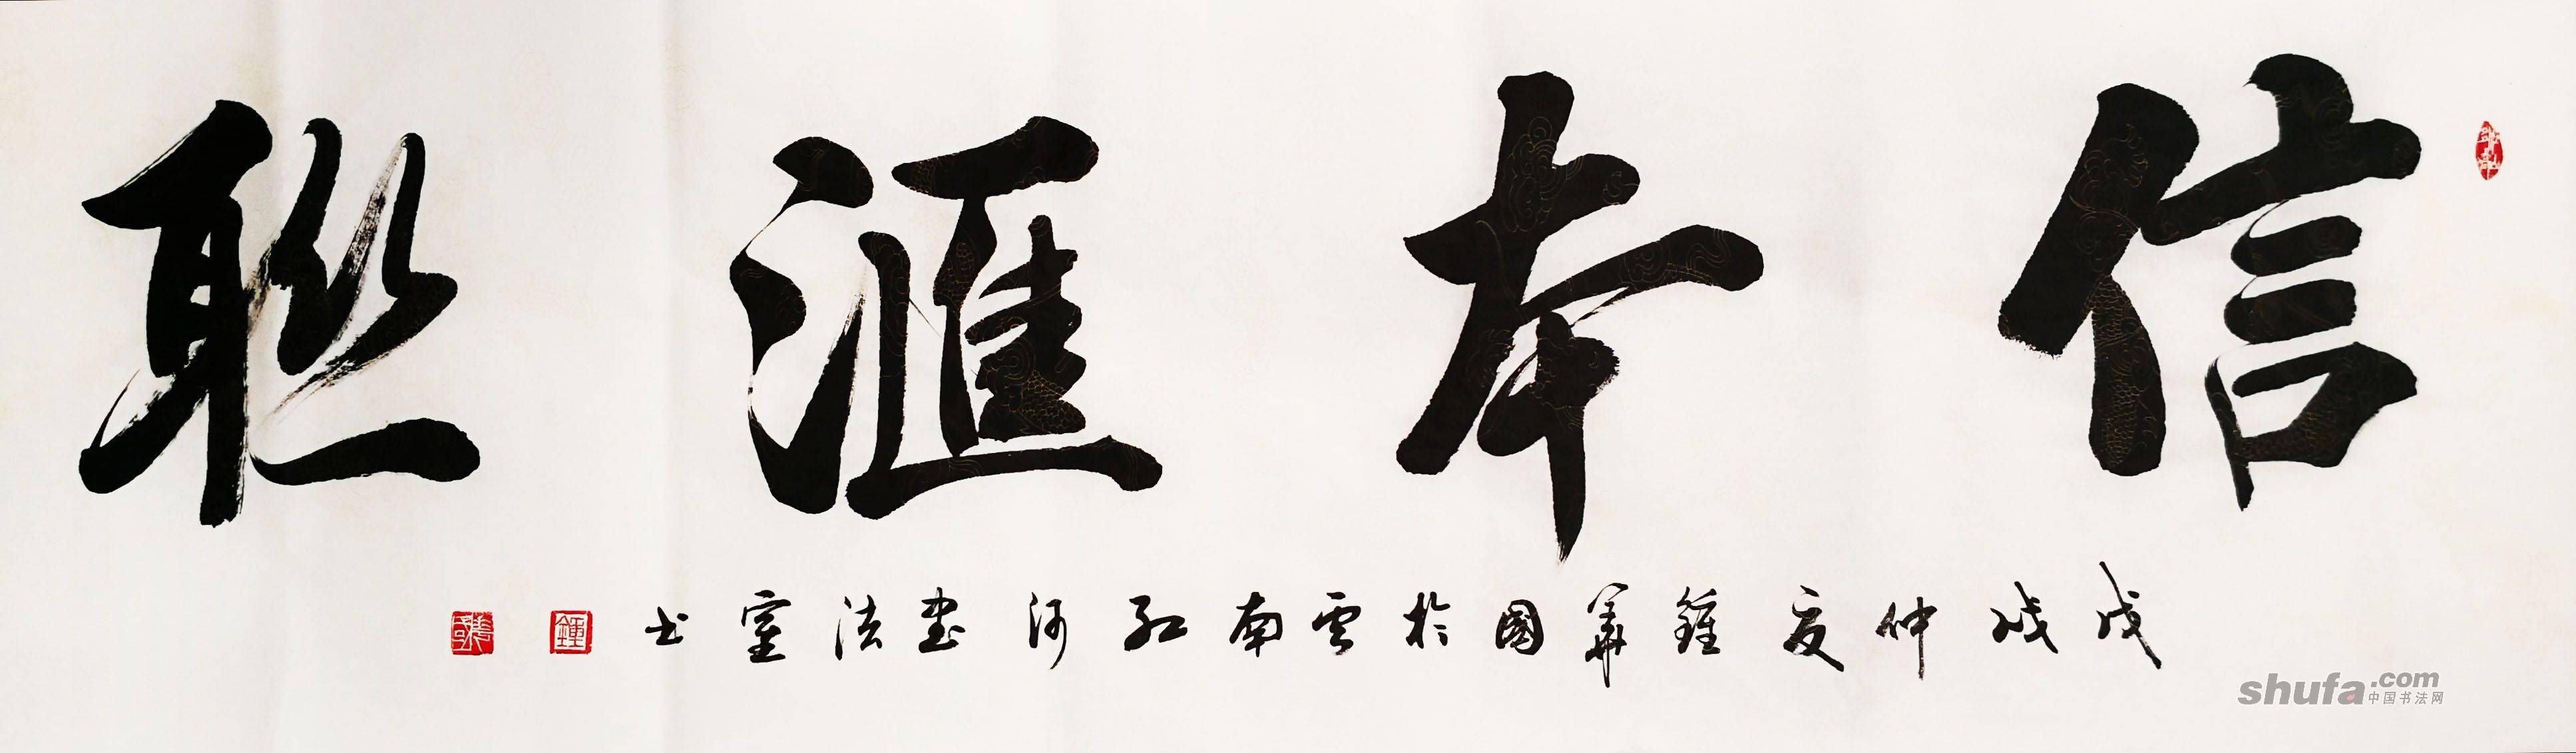 信本滙聯
戊戌仲夏鍾華國於雲南紅河書法室书
鍾
shufa.com
中国书法网